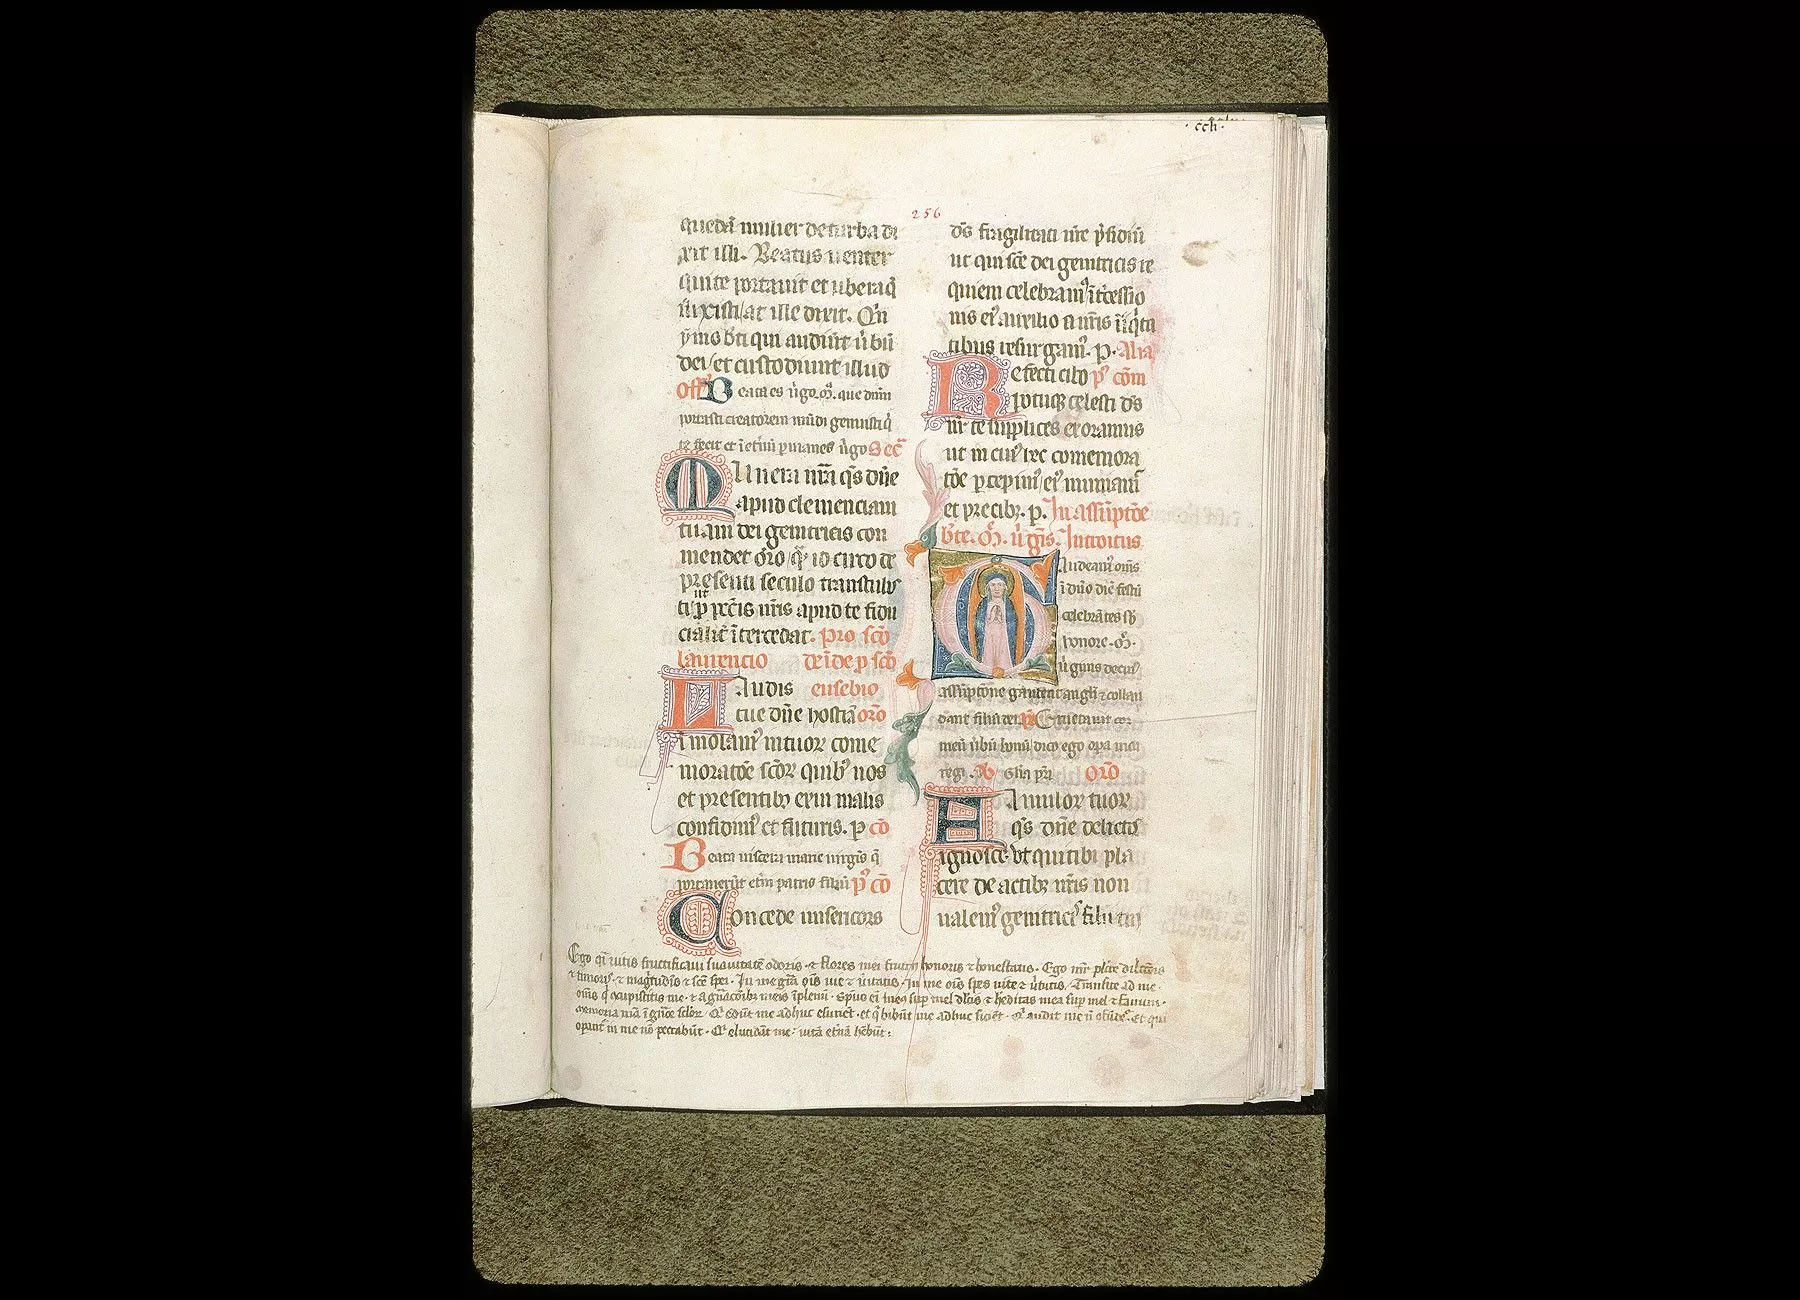 .ccli.
256
quedã mulier de turba di
xit illi. Beatus uenter
qui te portauit et ubera q̃
suxisti/at ille dixit. Q̃n
ỹmo bt̃i qui audiũt ũbũ
dei/et custodiunt illud
Off̃ Beata es ũgo.m̃. que dñm
portasti creatorem mũdi genuisti q̃
te fecit et ĩ etñũ ꝑmanes ũgo Sec̃
Munera nr̃a q̃s dñe
apud clemenciam
tuam dei genitricis con
mendet or̃o q̃ȝ idcirco de
presenti seculo transtulis
ti ut ꝓ pc̃cis nr̃is apud te fidu
cialiť ĩtercedat. pro sc̃o
laurencio deĩde ꝓ sc̃o
Laudis eusebio
tue dñe hostiã or̃o
ĩmolamꝰ in tuoꝝ come
moratõe sc̃oꝝ quibꝰ nos
et presentibȝ exui malis
confidimꝰ et futuris. ꝑ cõ
Beata uiscera marie uirgis q̃
portauerũt etñi patris filiũ p̃ cõ
Concede misericors
dũs fragilitati nr̃e p̃sidiũ
ut qui sc̃e dei genitricis re
quiem celebramꝰ ĩťcessio
nis eiꝰ auxilio a nr̃is ĩiq̃ta
tibus resurgamꝰ. ꝑ. Alia
Refecti cibo p̃ cõm
potuqȝ celesti dũs
nr̃ te supplices exoramus
ut in cuiꝰ hec comemora
tõe ꝑcepimꝰ/eiꝰ muniamur
et precibȝ. ꝑ. In assũptõe
bt̃e. m̃. ũgis. Introitus
Gaudeamꝰ om̃s
ĩ dño diẽ festũ
celebrãtes sb̃
honore .m̃.
ũginis de cuiꝰ
assũptione gaudent angli ⁊ collau
dant filiũ dei. p̃s Eructauit cor
meũ ũbũ bonũ dico ego opa mea
regi. Glia pr̃i or̃o
Famuloꝝ tuoꝝ
q̃s dñe delictis
ignosce. ut qui tibi pla
cere de actibȝ nr̃is non
ualemꝰ genitricis filii tui
Ego q̃i uitis fructificaui suauitatẽ odoris. ⁊ flores mei fructꝰ honoris ⁊ honestatis. Ego mr̃ pulcre dilectiõis
⁊ timoris. ⁊ magtudĩs ⁊ sc̃e spei. In me gr̃a om̃s uie ⁊ ũitatis. In me om̃s spes uite ⁊ ũtutis. Transite ad me
om̃s q̃ ɔcupiscitis me. ⁊ a gñacõibȝ meis ĩplemĩ. Spũs eĩ meꝰ sup mel dulcis ⁊ heditas mea sup mel ⁊ fauum.
memoria mea ĩ gñaõe sc̃loꝝ. Q̃ edũt me adhuc esuriẽt. et q̃ bibũt me adhuc siciẽt. Q̃ audit me nõ ɔfũdeť. Et qui
opant̃ in me nõ peccabũt. Q̃ elucidãt me uitã etñã hẽbũt: